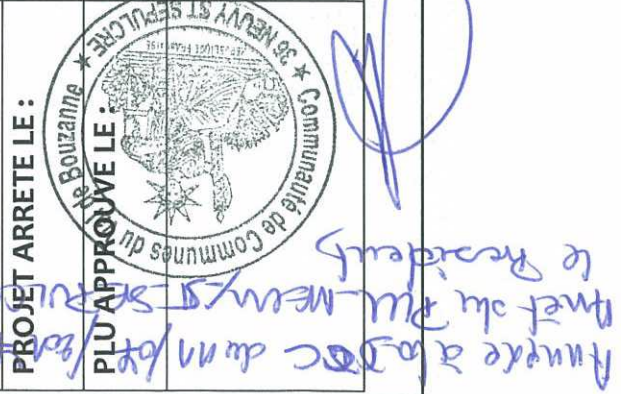 PROJET ARRETE LE :
PLU APPROUVE LE :
★ Communauté de Communes du de Bouzanne ★ 36 NEUVY ST SEPULCRE
REPUBLIQUE FRANCAISE
à la DCC du 11/07/
Arrêt du PLU NEUVY-ST-SEPULC
le Président